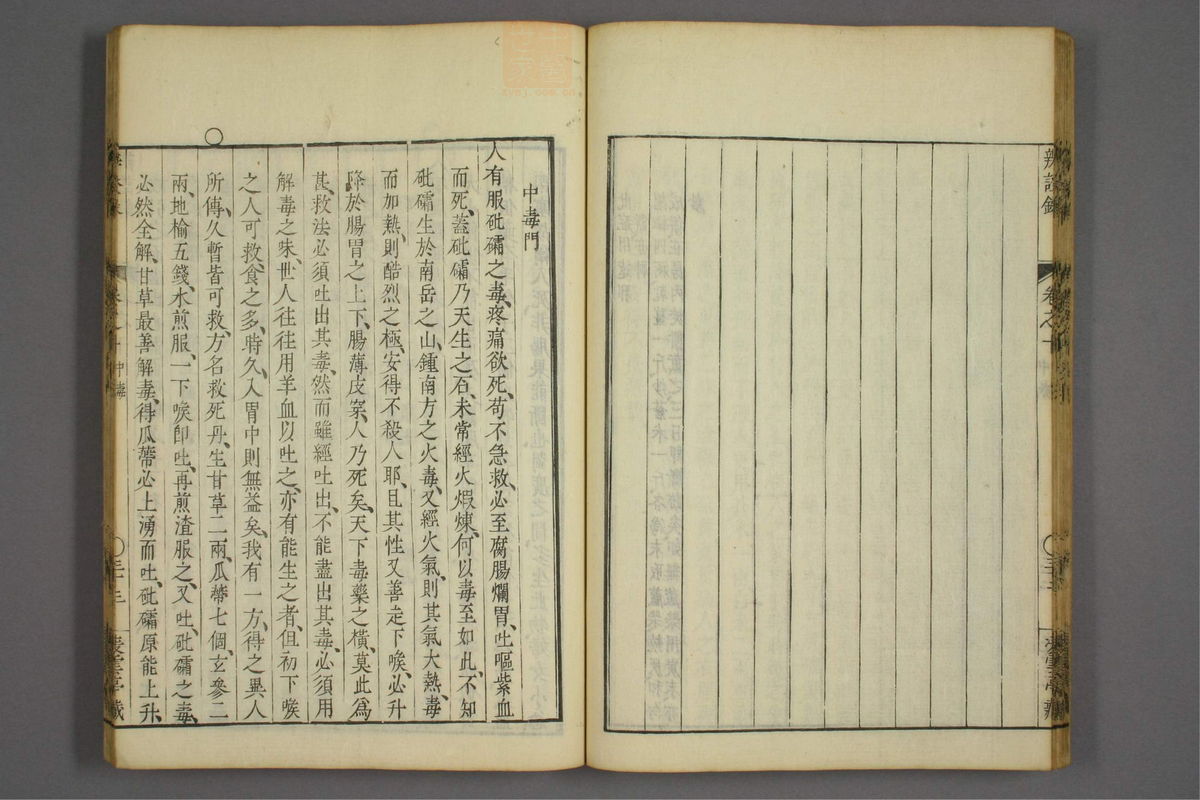 辨證錄
卷之十
中毒門
人有服砒礵之毒、疼痛欲死、苟不急救、必至腐腸爛胃、吐嘔紫血
而死、蓋砒礵乃天生之石、未常經火煆煉、何以毒至如此、不知
砒礵生於南岳之山、鍾南方之火毒、又經火氣、則其氣大熱、毒
而加熱、則酷烈之極、安得不殺人耶、且其性又善走下喉、必升
降於腸胃之上下、腸薄皮穿、人乃死矣、天下毒藥之橫、莫此爲
甚、救法必須吐出其毒、然而雖經吐出、不能盡出其毒、必須用
解毒之味、世人往往用羊血以吐之、亦有能生之者、但初下喉
之人可救、食之多、時久、入胃中則無益矣、我有一方、得之異人
所傳、久暫皆可救、方名救死丹、生甘草二兩、瓜蒂七個、玄參二
兩、地榆五錢、水煎服、一下喉即吐、再煎渣服之、又吐、砒礵之毒、
必然全解、甘草最善解毒、得瓜蒂必上湧而吐、砒礵原能上升、
中毒